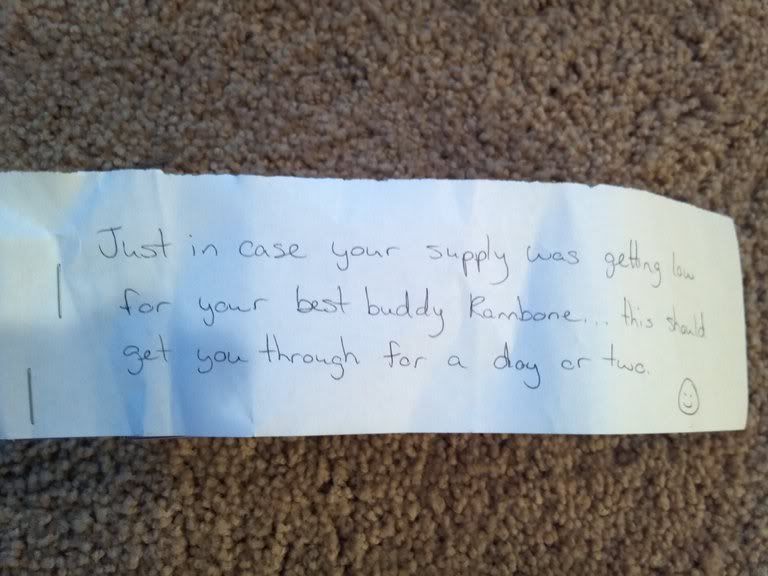 Just in case your supply was getting low
for your best buddy Rambone... this should
get you through for a day or two.